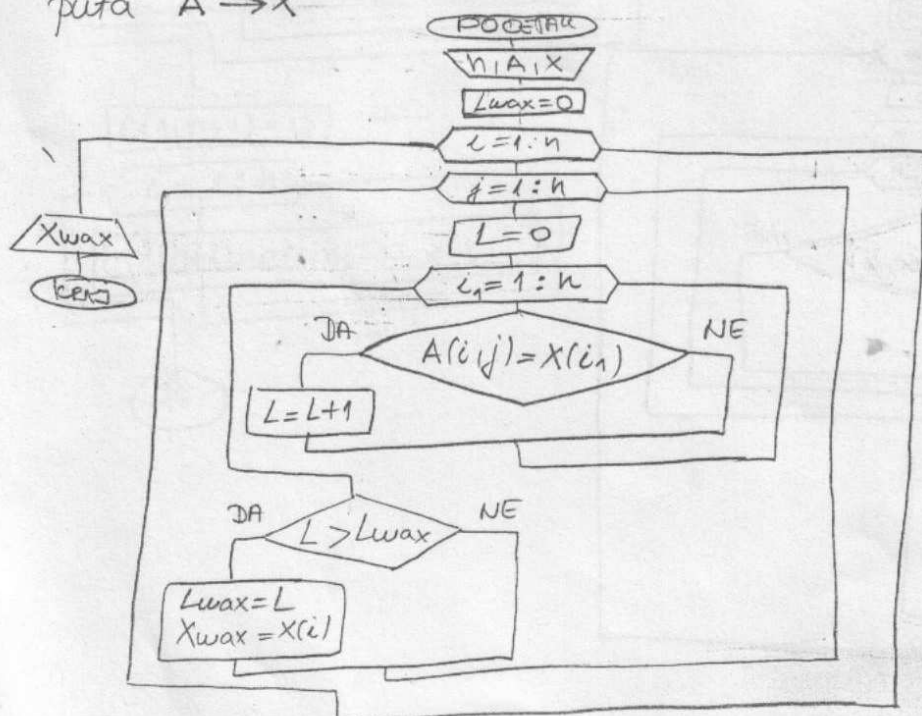 puta A → X
POČETAK
n, A, X
Lmax=0
i=1:n
j=1:n
L=0
i₁=1:n
DA
NE
A(i,j)=X(i₁)
L=L+1
DA
NE
L>Lmax
Lmax=L
Xmax=X(i)
Xmax
KRAJ